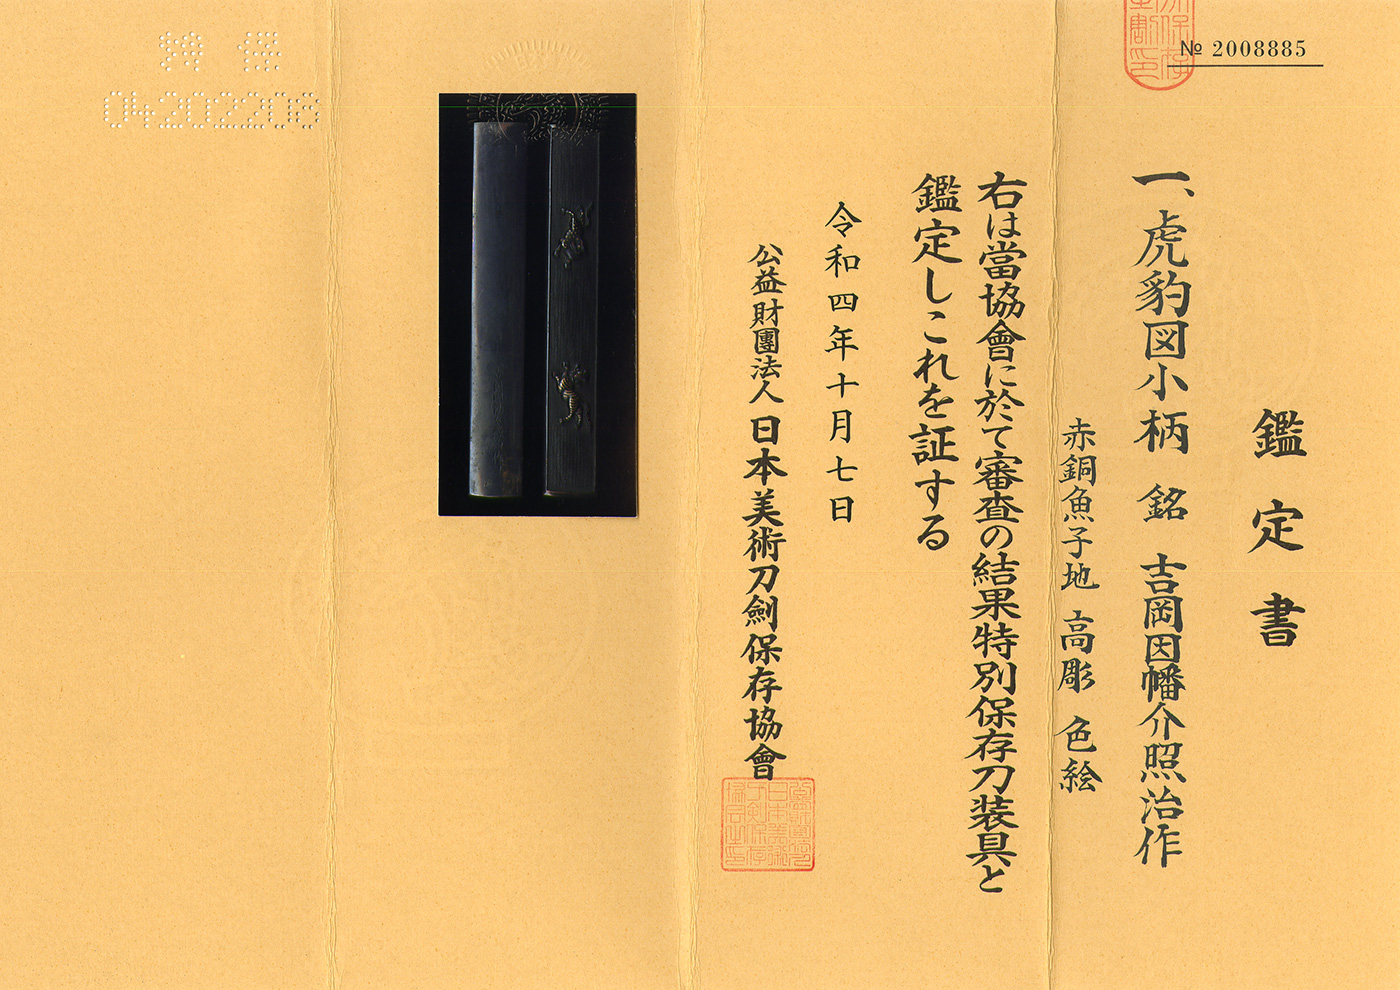 № 2008885
鑑定書
一、虎豹図小柄 銘 吉岡因幡介照治作
赤銅魚子地 高彫 色絵
右は當協會に於て審査の結果特別保存刀装具と
鑑定しこれを証する
令和四年十月七日
公益財團法人 日本美術刀劍保存協會
04202208